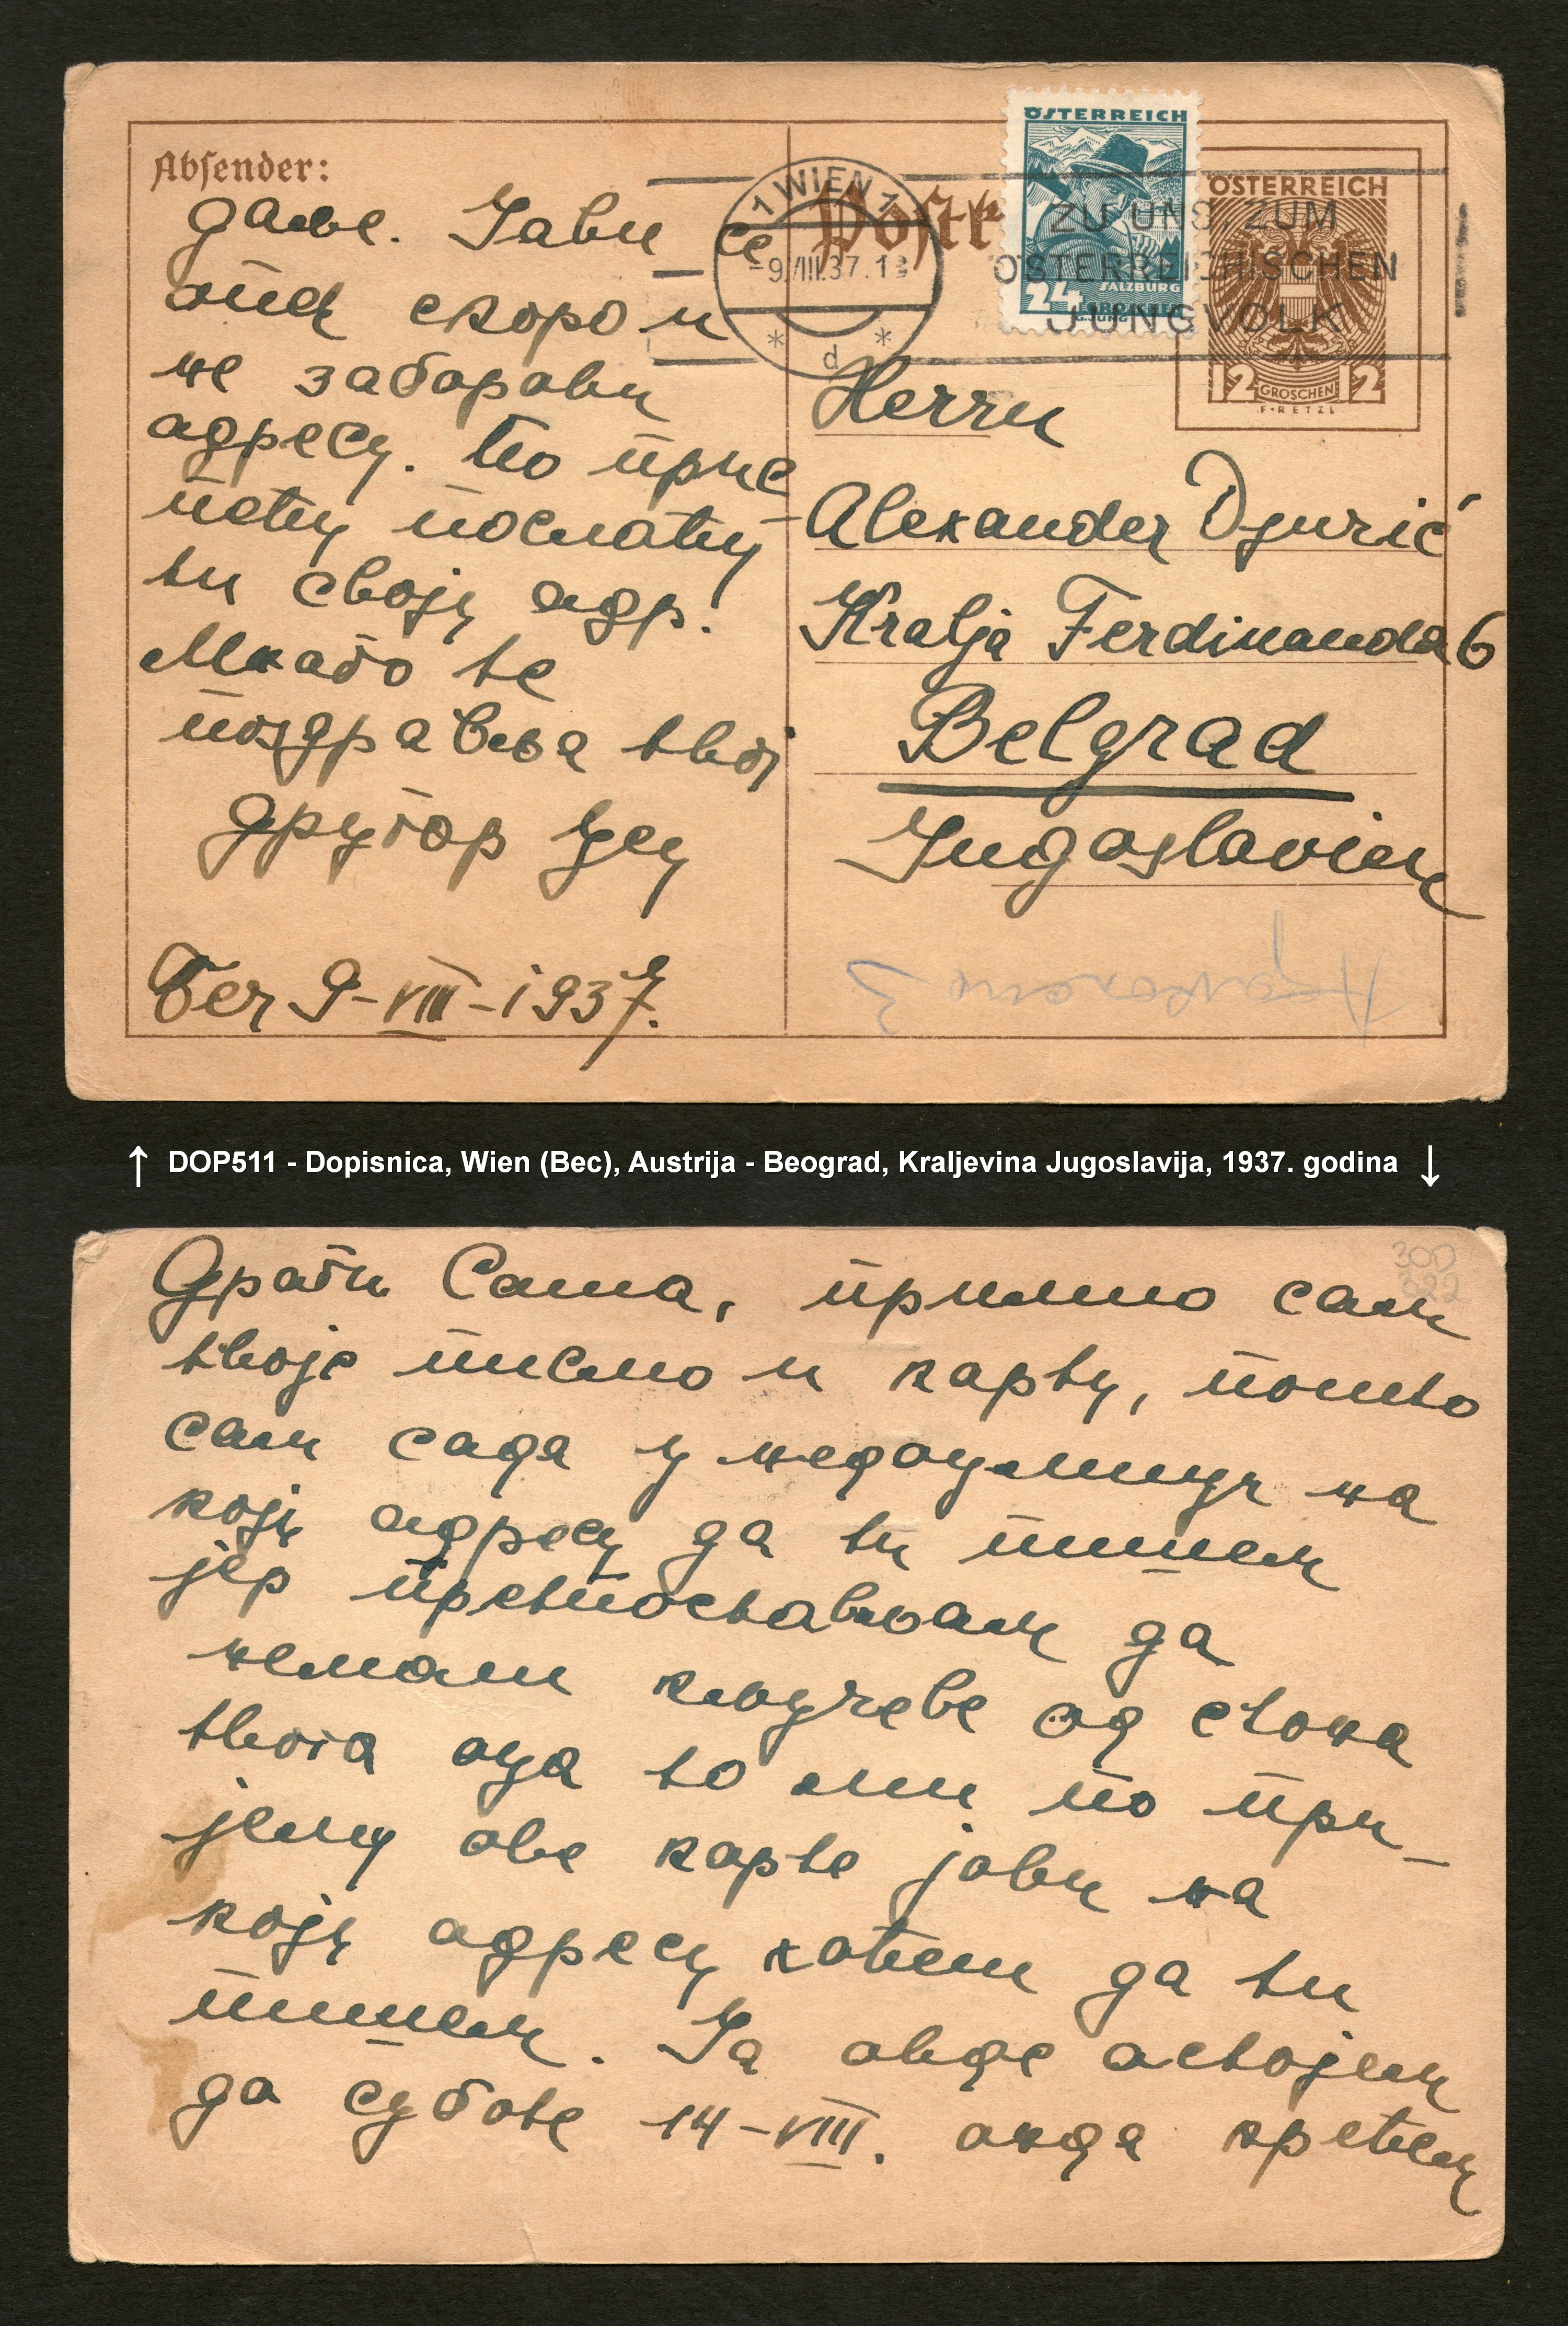 Absender:
даље. Јави се
опет скоро и
не заборави
адресу. По прис
пећу послаћу
ти своју адр.
Много те
поздравља твој
другар
Беч 9-VIII-1937.
1 WIEN 1
-9.VIII.37.18
* d *
ZU UNS, ZUM
ÖSTERREICHISCHEN
JUNGVOLK
ÖSTERREICH
SALZBURG
24
GROSCHEN
ÖSTERREICH
12 GROSCHEN 12
F·RETZL
Herrn
Alexander Djurić
Kralja Ferdinanda 6
Belgrad
Jugoslavien
↑ DOP511 - Dopisnica, Wien (Bec), Austrija - Beograd, Kraljevina Jugoslavija, 1937. godina ↓
300
Драги Саша, примио сам
твоје писмо и карту, пошто
сам сада у недоумици на
коју адресу да ти пишем
јер претпостављам да
немаш кључеве од стана
твога оца то ми по при-
јему ове карте јави на
коју адресу хоћеш да ти
пишем. Ја овде остојем
да суботе 14-VIII. онда крећем